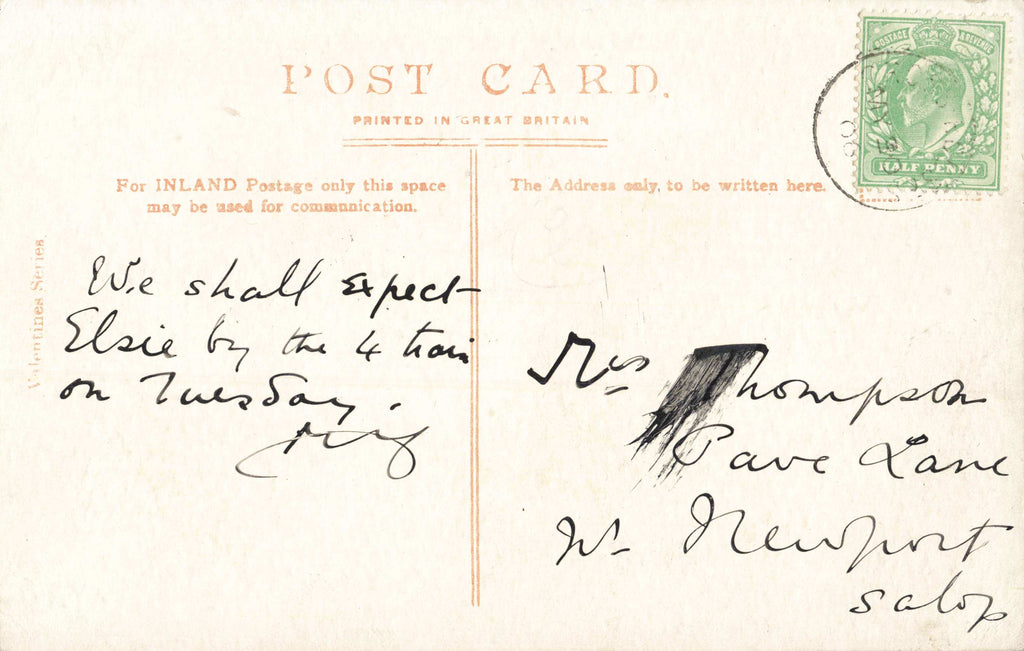 POST CARD.
PRINTED IN GREAT BRITAIN
For INLAND Postage only this space
may be used for communication.
The Address only, to be written here.
POSTAGE & REVENUE
HALF PENNY
Valentines Series
We shall expect
Elsie by the 4 train
on Tuesday.
Mrs Thompson
Pave Lane
Nr Newport
Salop